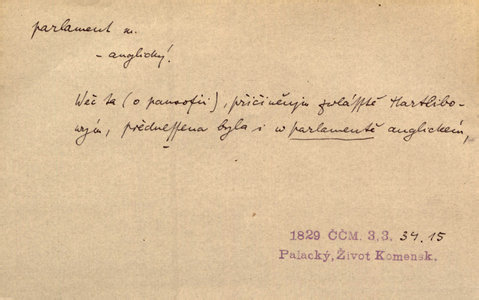 parlament m.
- anglický.
Wěc ta (o pansofii), přičiněnjm zwláśstě Hartlibo-
wým, přednessena byla i w parlamentě anglickém,
1829 ČČM. 3,3. 34.15
Palacký, Život Komensk.